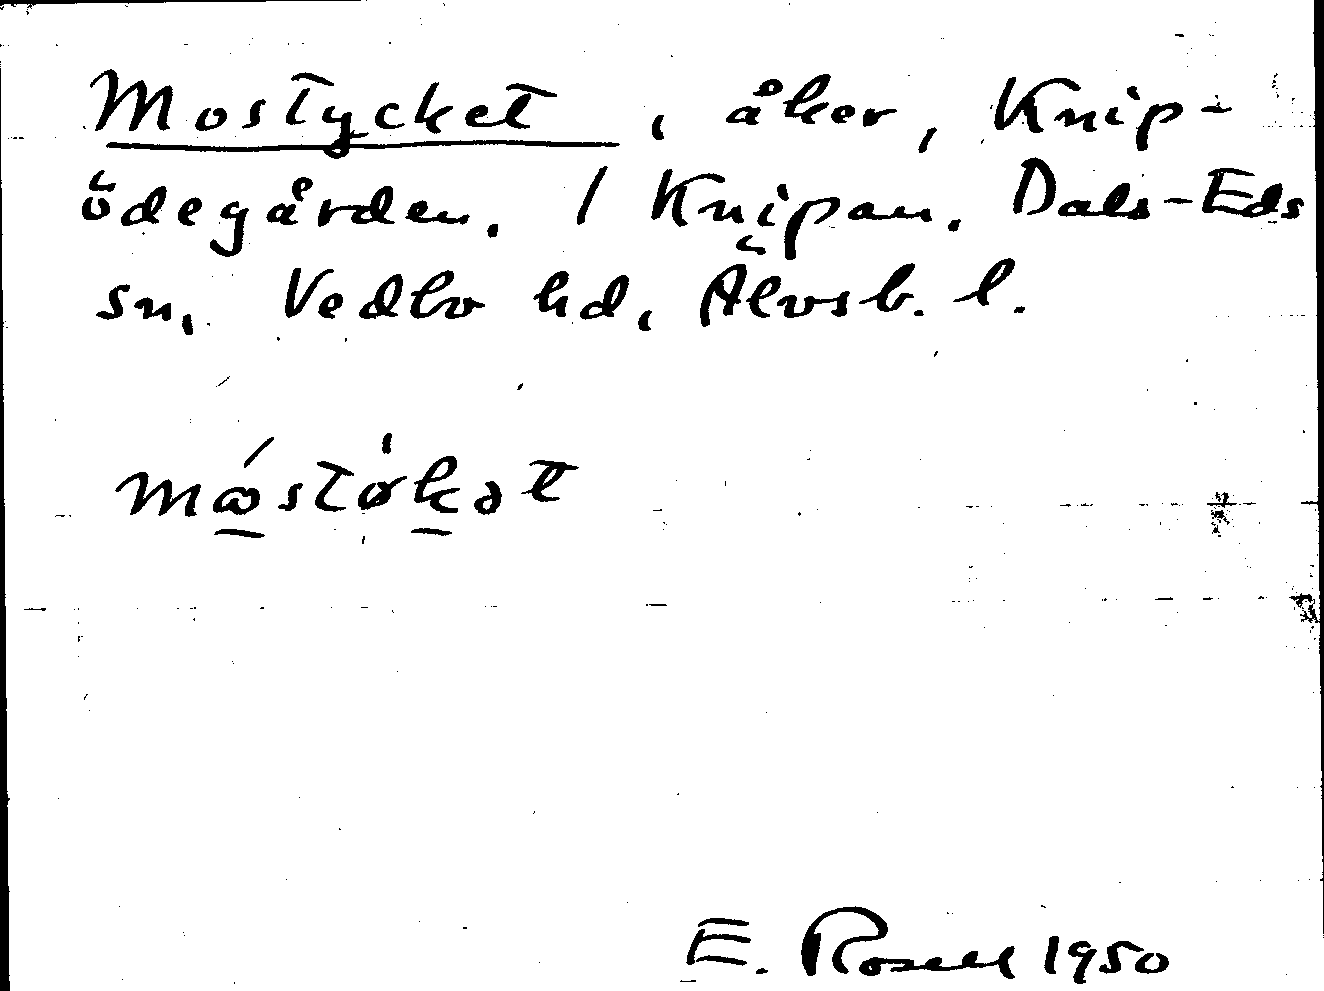 Mostycket, åker, Knip-
ödegården. / Knipan. Dals-Eds
sn, Vedbo hd, Älvsb. l.
mɷ́stø̍kət
E. Rosell 1950